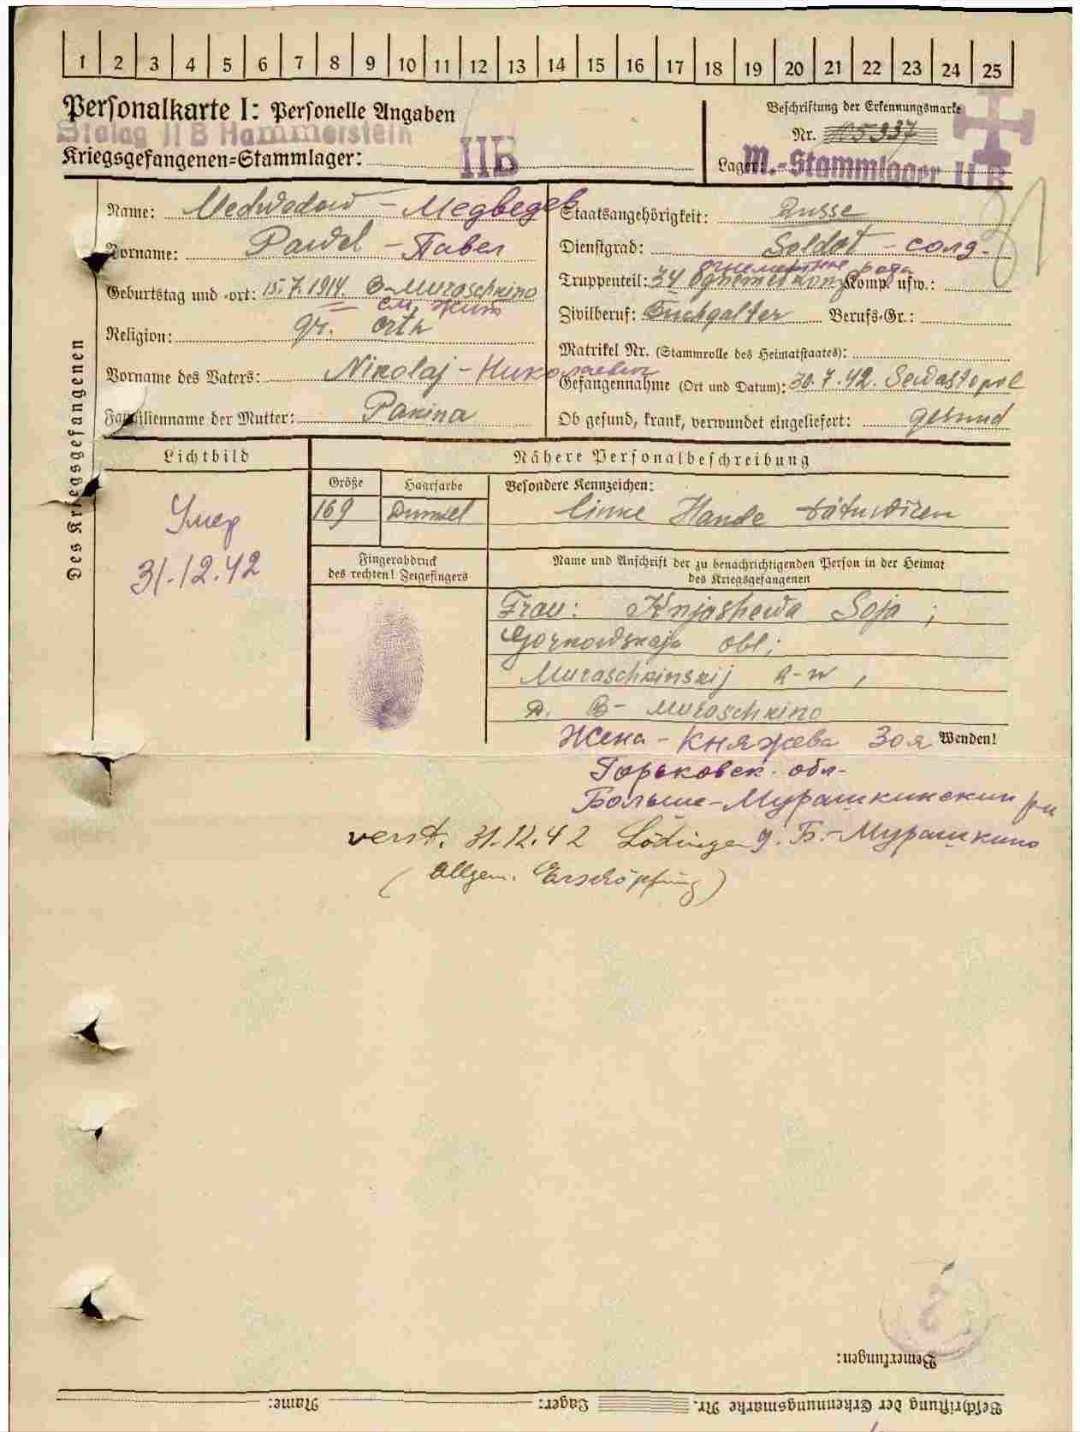 1 2 3 4 5 6 7 8 9 10 11 12 13 14 15 16 17 18 19 20 21 22 23 24 25
Personalkarte I: Personelle Angaben
Beschriftung der Erkennungsmarke
Stalag II B Hammerstein
Nr. 105937
Kriegsgefangenen=Stammlager: IIB
Lager: M.-Stammlager II B
Des Kriegsgefangenen
Name: Medwedew - Медведев
Vorname: Pawel - Павел
Geburtstag und =ort: 15.7.1914. B-Muraschkino
см. жит
Religion: gr. orth
Vorname des Vaters: Nikolaj - Николаевич
Familienname der Mutter: Panina
Staatsangehörigkeit: Russe
Dienstgrad: Soldat - солд.
огнеметная рота
Truppenteil: 34 Komp. usw.:
Zivilberuf: Buchgalter Berufs-Gr.:
Matrikel Nr. (Stammrolle des Heimatstaates):
Gefangennahme (Ort und Datum): 30.7.42. Sewastopol
Ob gesund, krank, verwundet eingeliefert: gesund
Lichtbild
Nähere Personalbeschreibung
Größe
Haarfarbe
Besondere Kennzeichen:
169
Dunkel
linke Hande
Умер
31.12.42
Fingerabdruck
des rechten! Zeigefingers
Name und Anschrift der zu benachrichtigenden Person in der Heimat
des Kriegsgefangenen
Frau: Knjashewa Soja ;
Gorkowskaja obl;
Muraschkinskij R-n ,
D. B- Muraschkino
Жена - Княжева Зоя
Wenden!
Горьковск. обл.
Больше-Мурашкинский р-н
д. Б.-Мурашкино
verst. 31.12.42
(Allgem. Erschöpfung)
Bemerkungen:
Beschriftung der Erkennungsmarke Nr. Lager: Name: